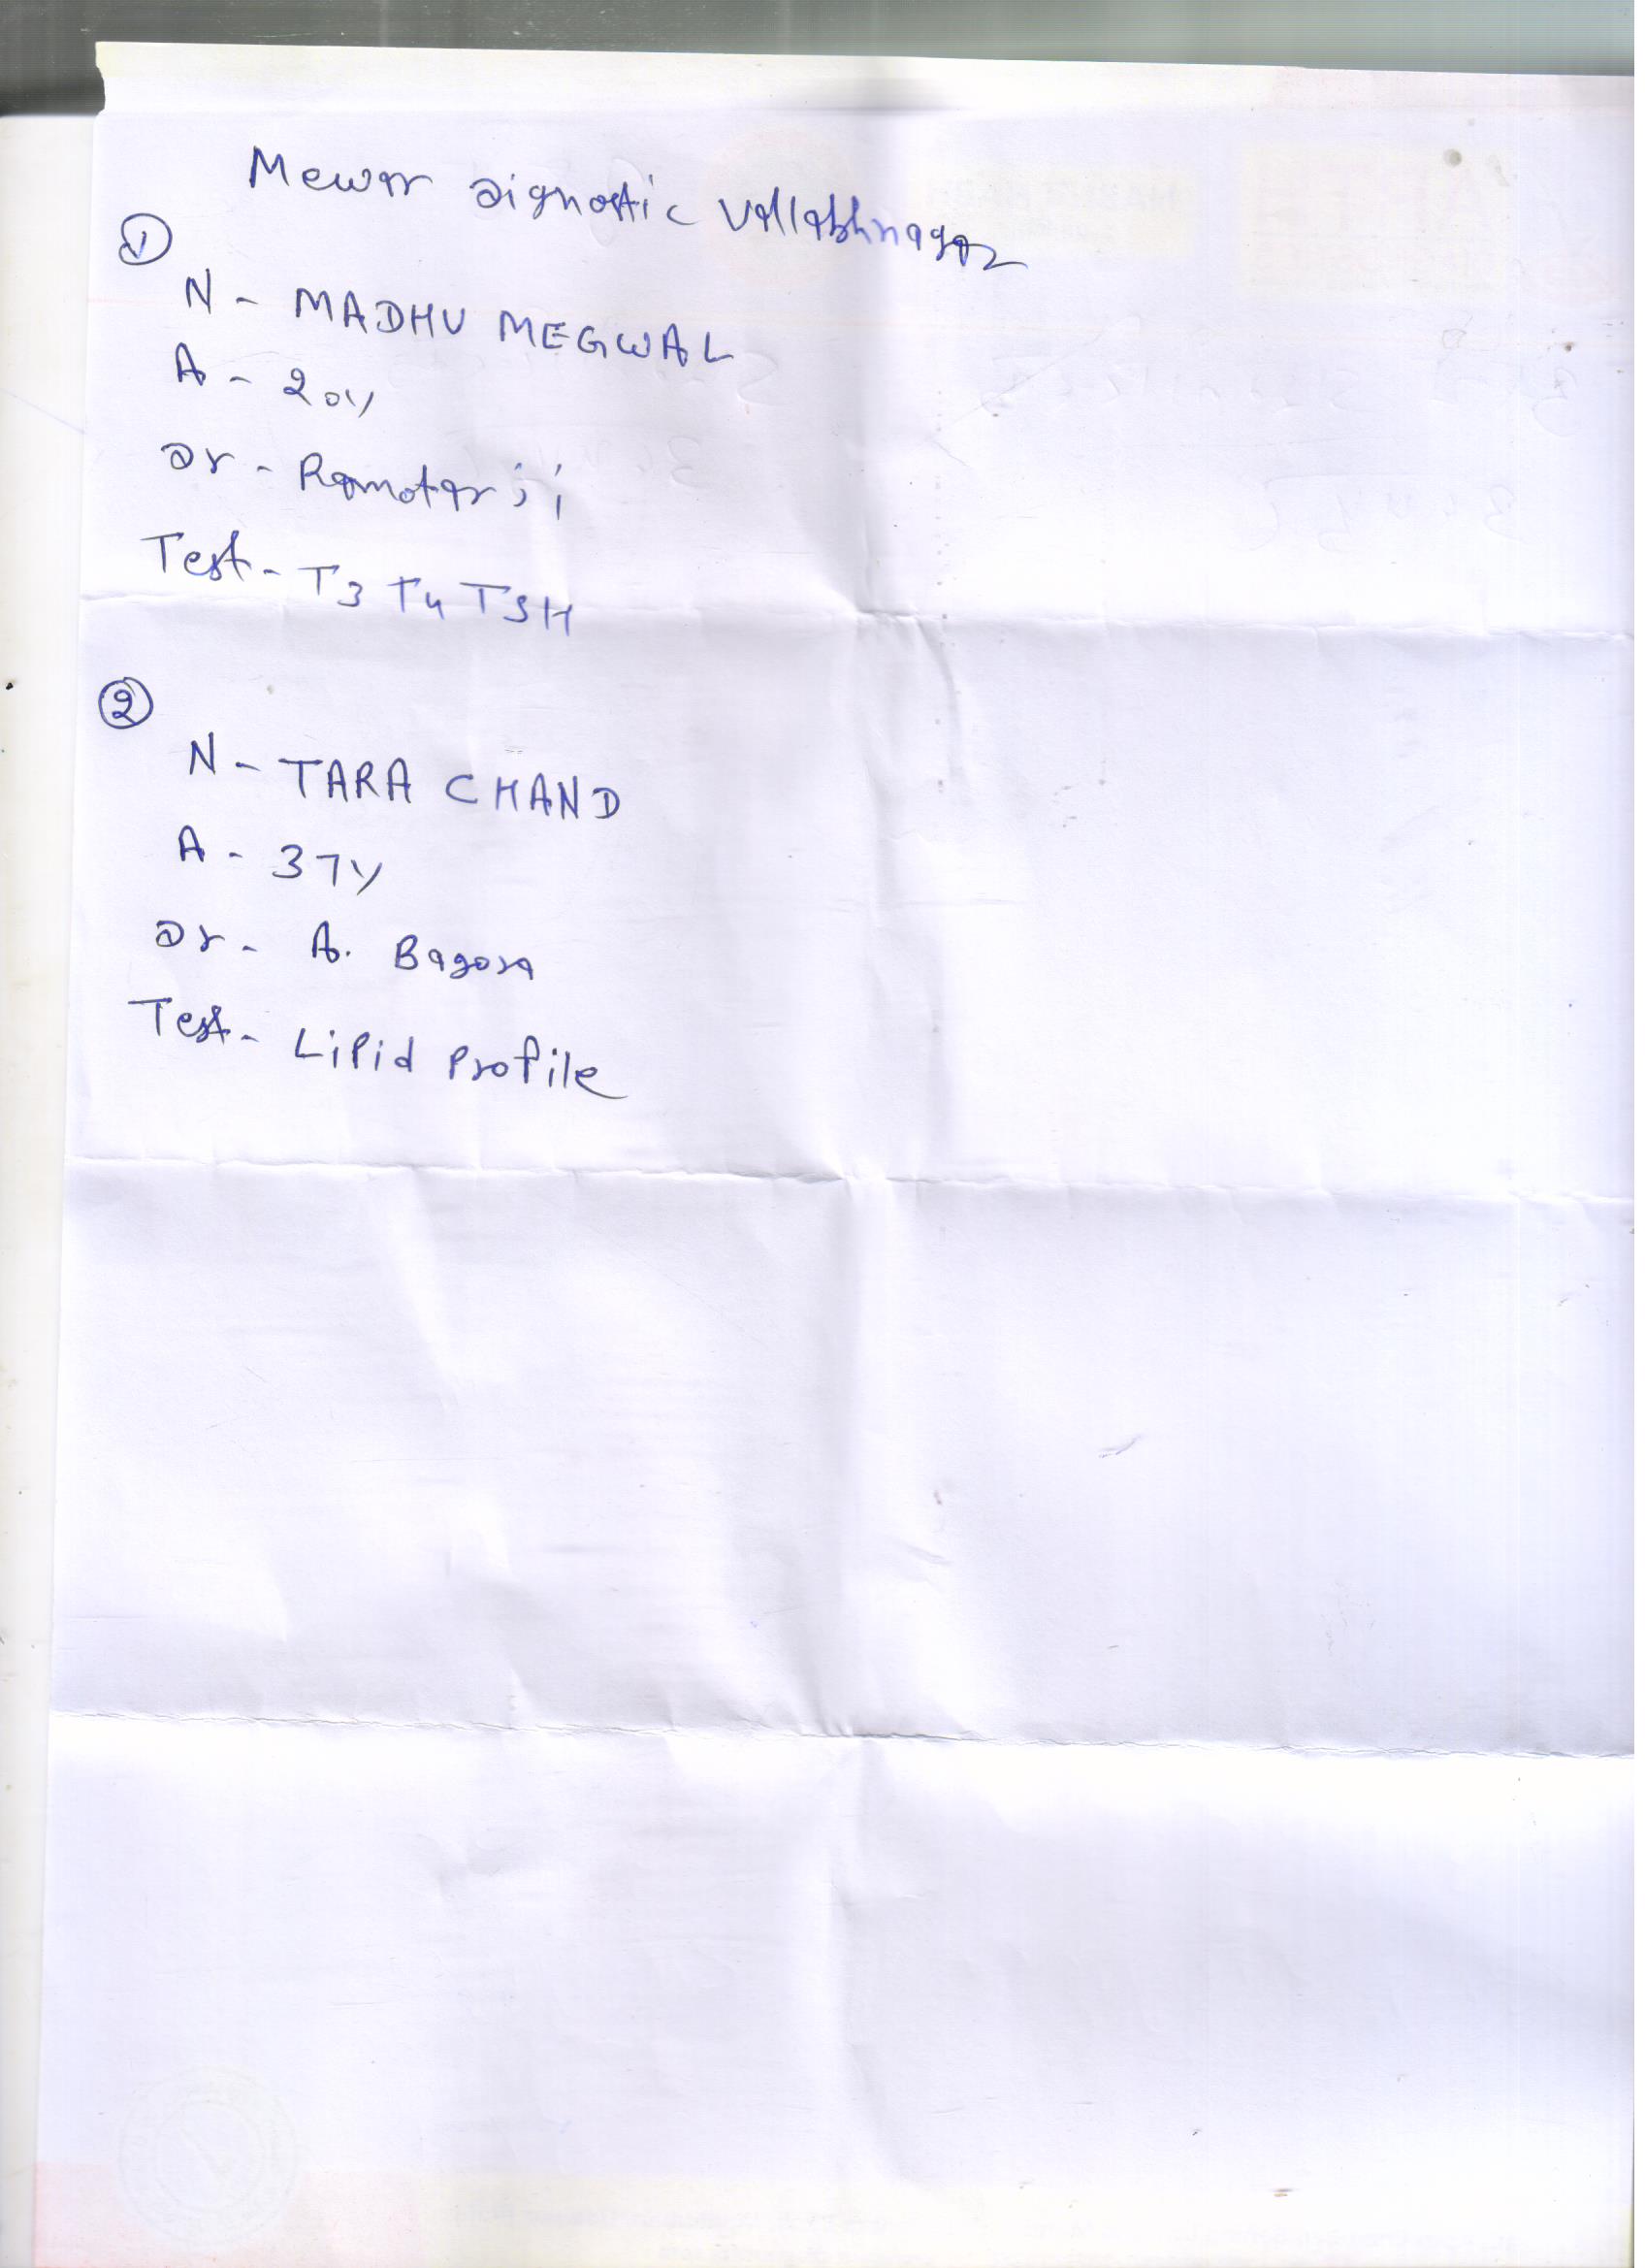 Mewar Dignostic Vallabhnagar
①
N - MADHU MEGWAL
A - 20y
Dr - Ramotar ji
Test - T3 T4 TSH
②
N - TARA CHAND
A - 37y
Dr - A. Bagora
Test - Lipid Profile